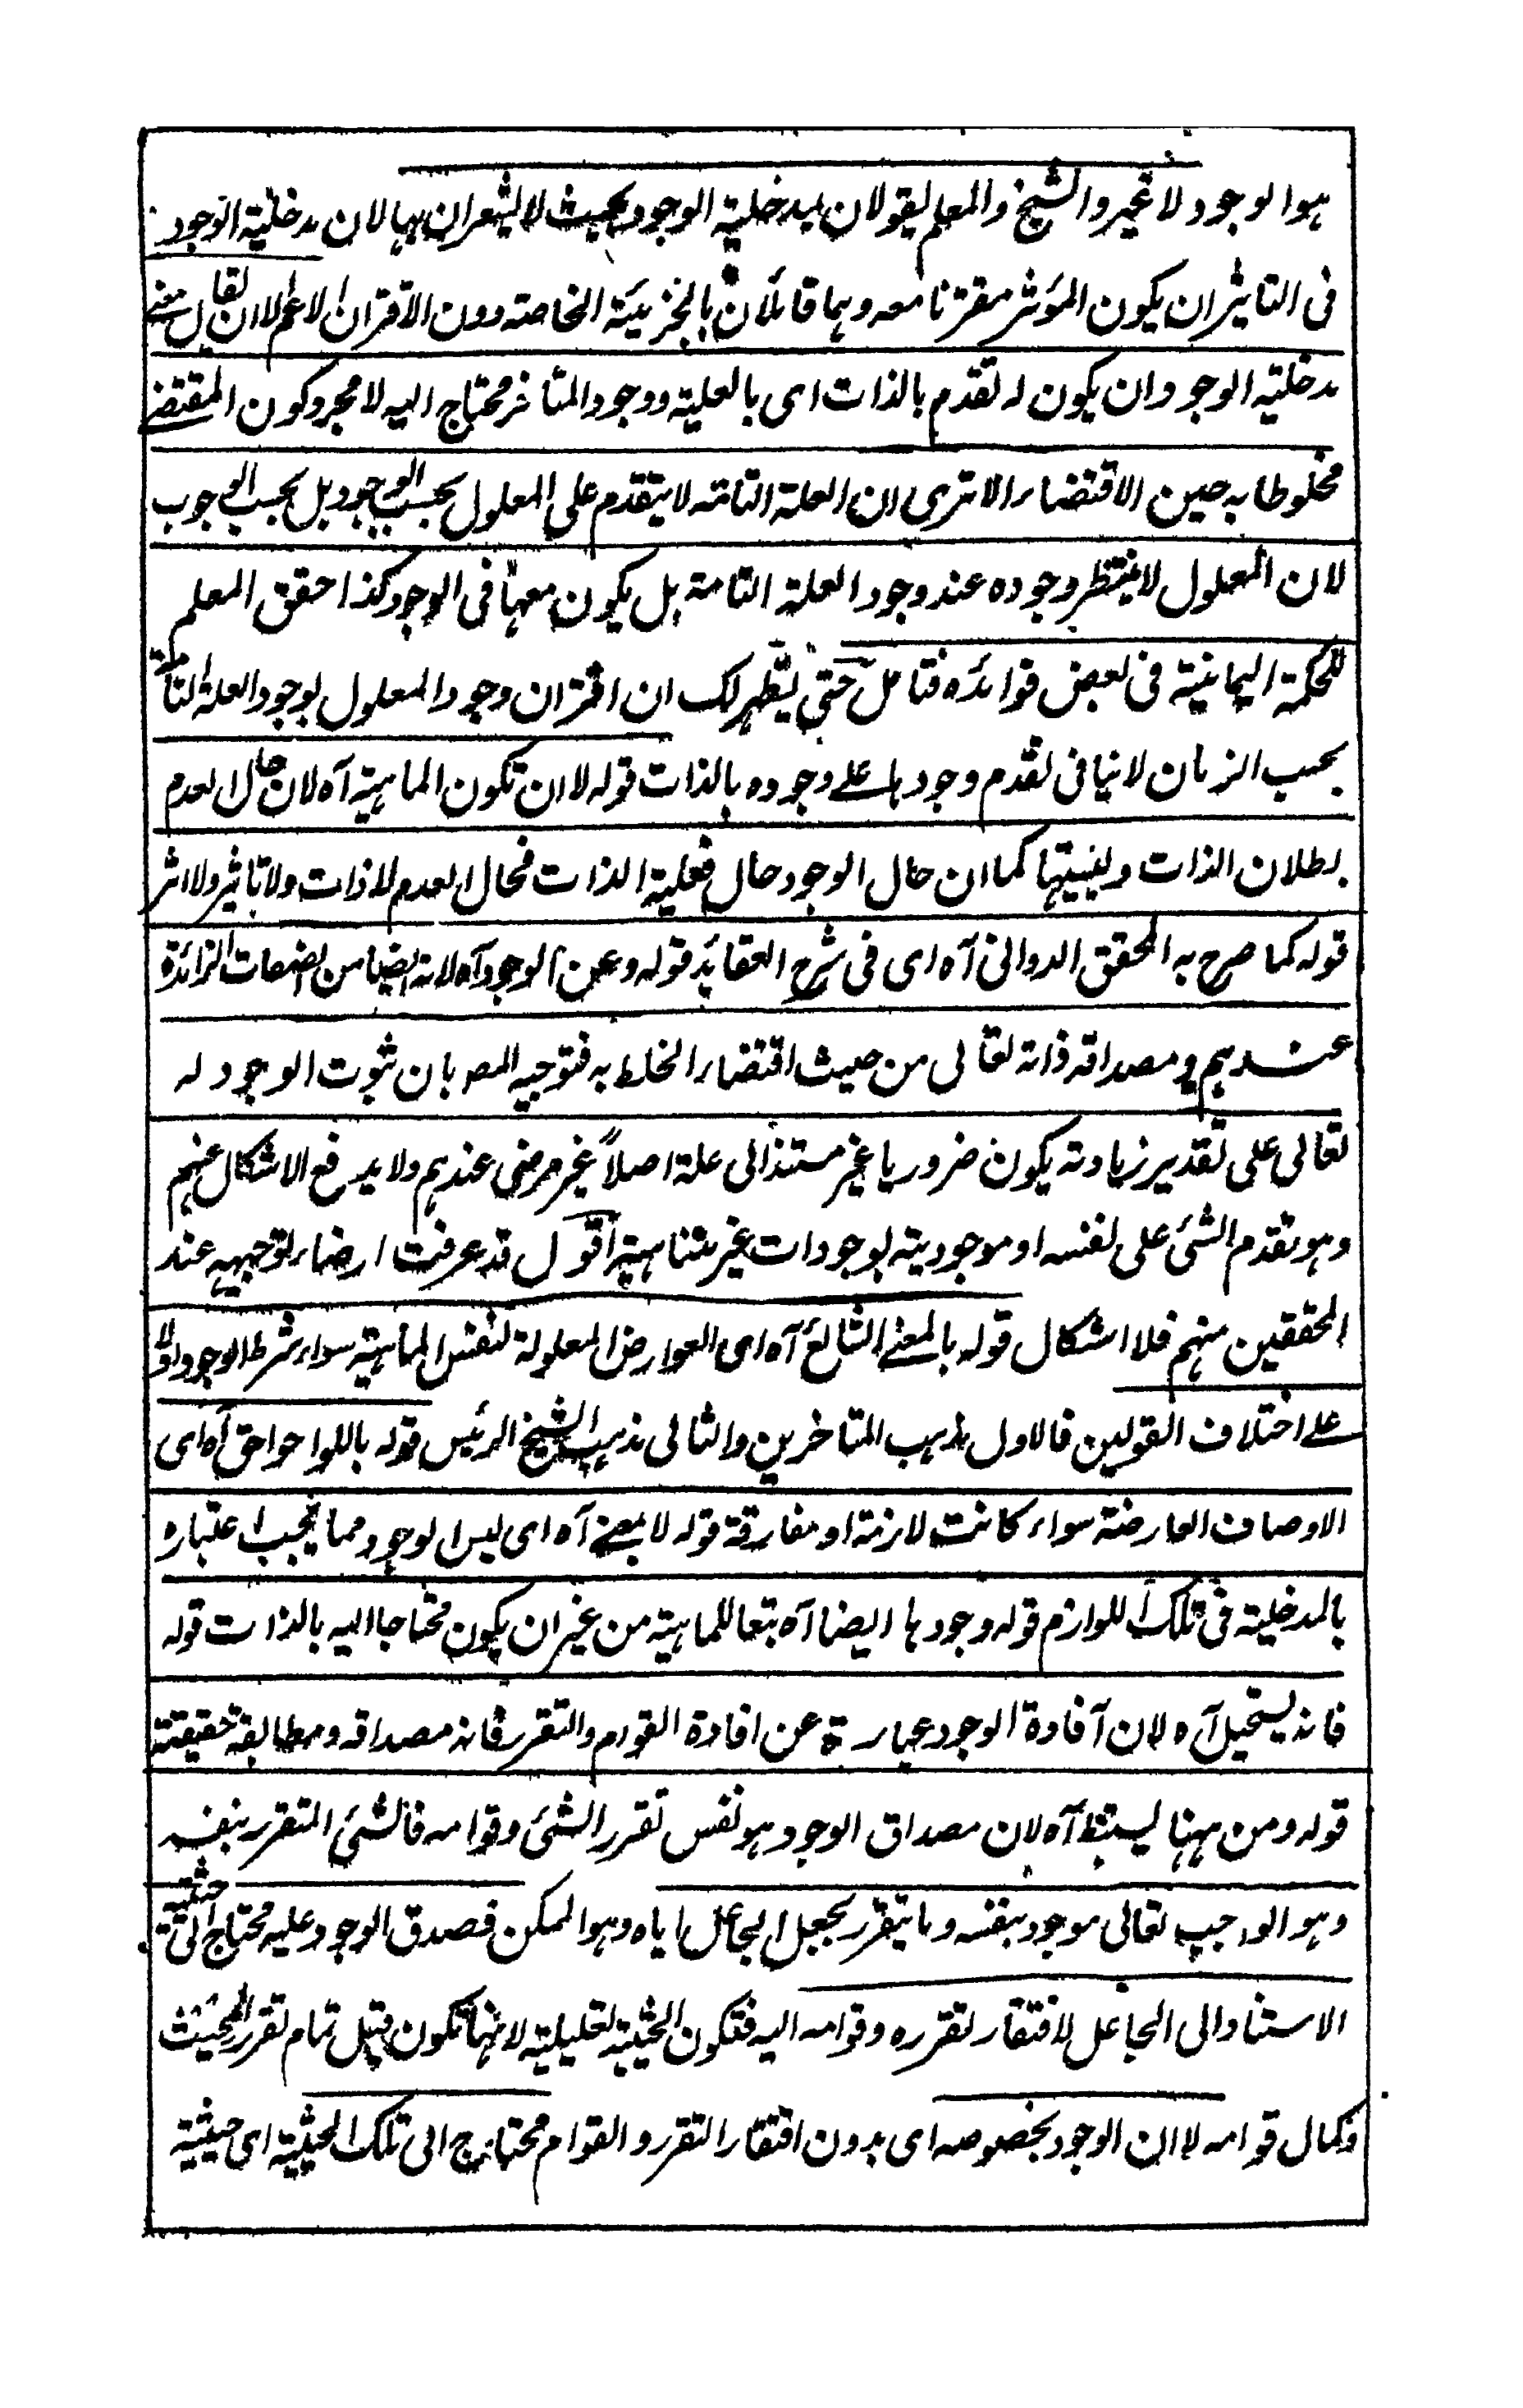 هو الوجود لا غير والشيخ والمعلم يقولان بمدخلية الوجود بحيث لا يشعران بها لان مدخلية الوجود
فى التاثير ان يكون المؤثر مقترنا معه وهما قائلان بالجزئية الخاصة دون الاقتران الاعم لا ان يقال معنى
مدخلية الوجود ان يكون له تقدم بالذات اى بالعلية ووجود المتاخر محتاج اليه لا مجرد كون المقتضى
مخلوطا به حين الاقتضاء الا ترى ان العلة التامة لا يتقدم على المعلول بحسب الوجود بل بحسب الوجوب
لان المعلول لا ينتظر وجوده عند وجود العلة التامة بل يكون معها فى الوجود كذا حقق المعلم
للحكمة اليمانية فى بعض فوائده فتامل حتى يظهر لك ان اقتران وجود المعلول بوجود العلة التامة
بحسب الزمان لا ينافى تقدم وجودها على وجوده بالذات قوله لا ان تكون الماهية آه لان حال العدم
بطلان الذات وليسيتها كما ان حال الوجود حال فعلية الذات فحال العدم لا ذات ولا تاثير ولا اثر
قوله كما صرح به المحقق الدوانى آه اى فى شرح العقائد قوله وعن الوجود آه لانه ايضا من الصفات الزائدة
عندهم ومصداقه ذاته تعالى من حيث اقتضاء الخلط به فتوجيه المص بان ثبوت الوجود له
تعالى على تقدير زيادته يكون ضروريا غير مستند الى علة اصلاً غير مرضى عندهم ولا يدفع الاشكال عنهم
وهو تقدم الشئ على نفسه او موجوديته بوجودات غير متناهية اقول قد عرفت ارضاء توجيهه عند
المحققين منهم فلا اشكال قوله بالمعنى الشائع آه اى العوارض المعلولة لنفس الماهية سواء بشرط الوجود اولا
على اختلاف القولين فالاول مذهب المتاخرين والثانى مذهب الشيخ الرئيس قوله باللواحق آه اى
الاوصاف العارضة سواء كانت لازمة او مفارقة قوله لا بمعنى آه اى ليس الوجود مما يجب اعتباره
بالمدخلية فى تلك اللوازم قوله وجودها ايضا آه تبعا للماهية من غير ان يكون محتاجا اليه بالذات قوله
فانه يستحيل آه لان آفادة الوجود عبارة عن افادة القوام والتقرر فانه مصداقه ومطابقة حقيقته
قوله ومن ههنا يستنبط آه لان مصداق الوجود هو نفس تقرر الشئ وقوامه فالشئ المتقرر بنفسه
وهو الواجب تعالى موجود بنفسه وما يتقرر بجعل الجاعل اياه وهو الممكن فصدق الوجود عليه محتاج الى حيثية
الاستناد الى الجاعل لافتقار تقرره وقوامه اليه فتكون الحيثية تعليلية لانها تكون قبل تمام تقرر المحيث
وكمال قوامه لا ان الوجود بخصوصه اى بدون افتقار التقرر والقوام محتاج الى تلك الحيثية اى حيثية